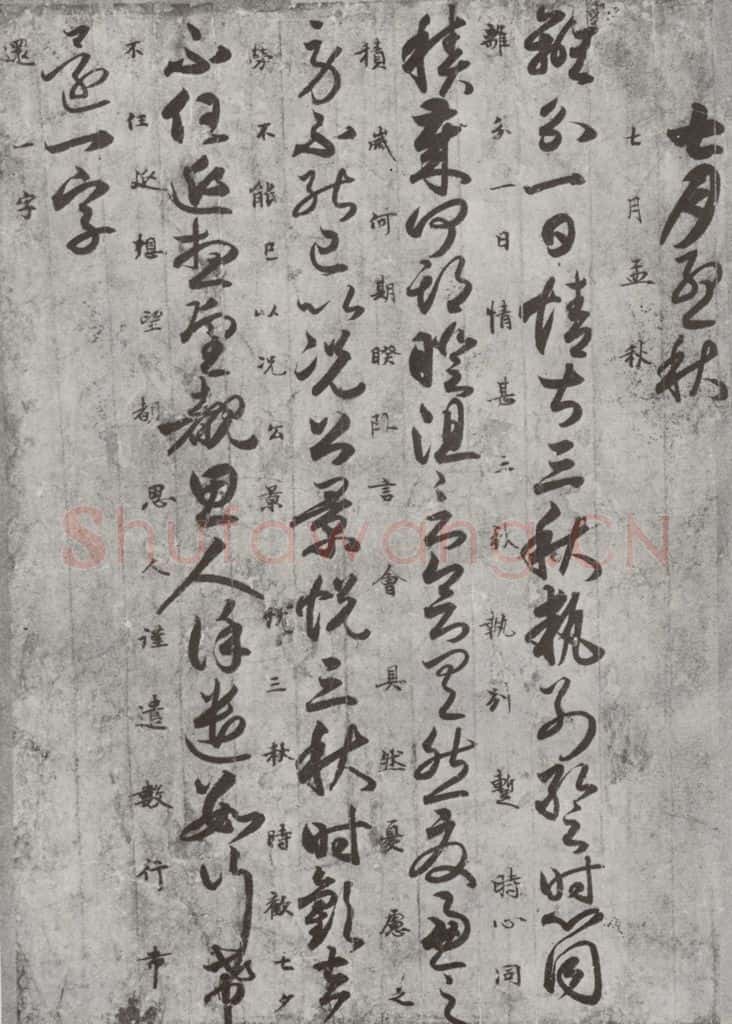 七月孟秋
七月孟秋
離分一日情甚三秋執別暫時心同
離分一日情甚三秋執別暫時心同
積歲何期睽阻言會具然憂慮之
積歲何期睽阻言會具然憂慮之
勞不能已以況公景悅三秋時歡七夕
勞不能已以況公景悅三秋時歡七夕
不任延想望都思人謹遣數行希
不任延想望都思人謹遣數行希
還一字
還一字
Shufawang.CN